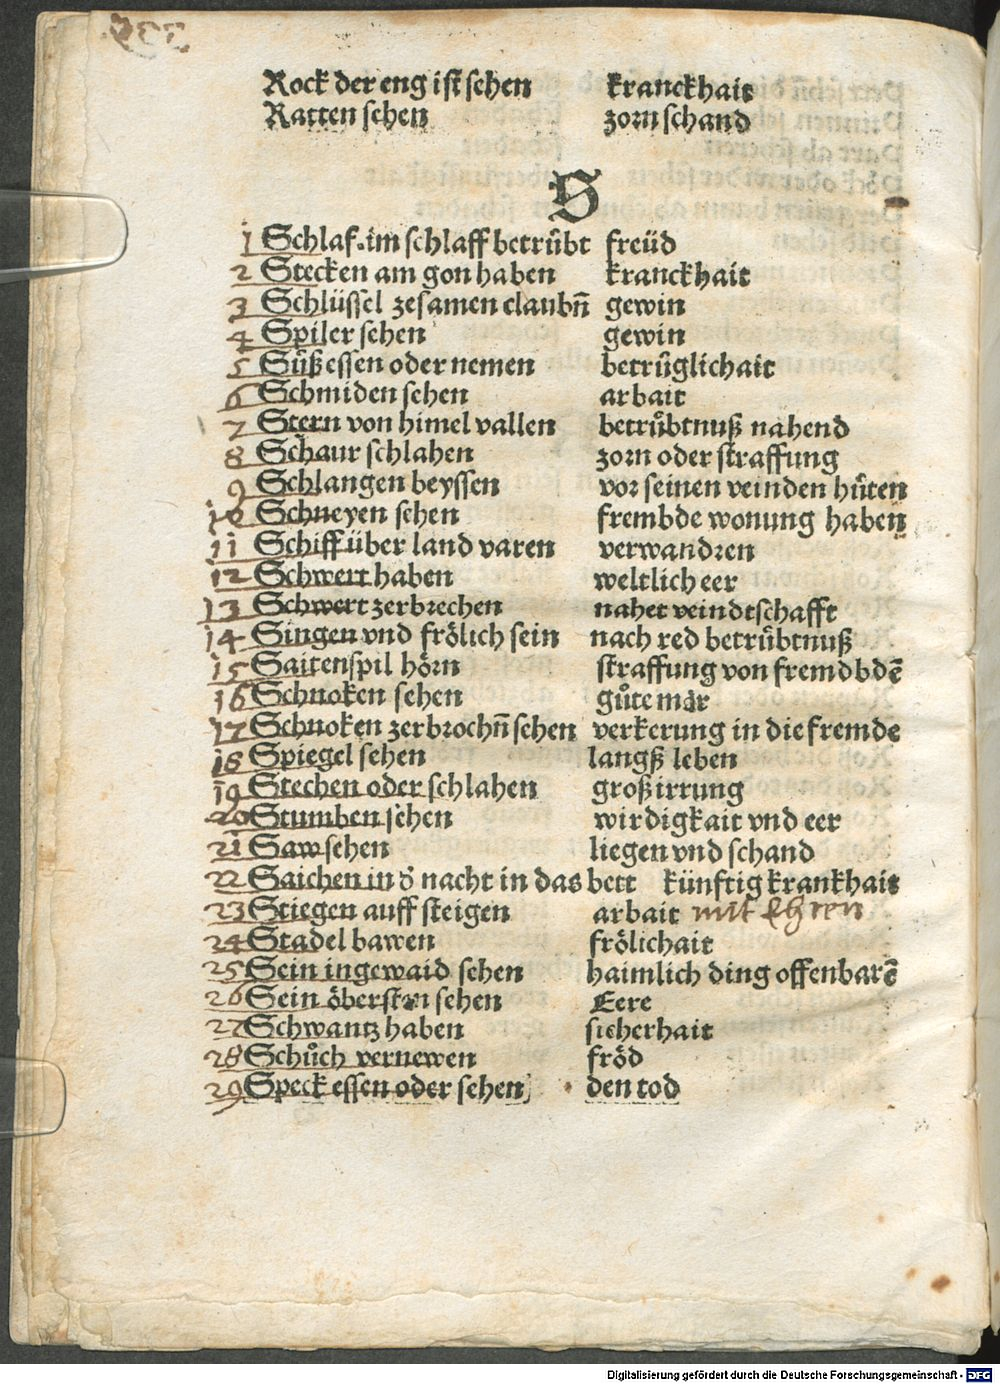 Rock der eng ist sehen kranckhait
Ratten sehen zorn schand
S
1 Schlaf im schlaff betrůbt freüd
2 Stecken am gon haben kranckhait
3 Schlüssel zesamen claubn̄ gewin
4 Spiler sehen gewin
5 Sůß essen oder nemen betrůglichait
6 Schmiden sehen arbait
7 Stern von himel vallen betrůbtnuß nahend
8 Schaur schlahen zorn oder straffung
9 Schlangen beyssen vor seinen veinden hůten
10 Schneyen sehen frembde wonung haben
11 Schiff über land varen verwandren
12 Schwert haben weltlich eer
13 Schwert zerbrechen nahet veindtschafft
14 Singen vnd frölich sein nach red betrůbtnuß
15 Saitenspil hörn straffung von fremdbdē
16 Schnoken sehen gůte mär
17 Schnoken zerbrochn̄ sehen verkerung in die fremde
18 Spiegel sehen langß leben
19 Stechen oder schlahen groß irrung
20 Stumben sehen wirdigkait vnd eer
21 Saw sehen liegen vnd schand
22 Saichen in d̕ nacht in das bett künftig krankhait
23 Stiegen auff steigen arbait mit Ehren
24 Stadel bawen frölichait
25 Sein ingewaid sehen haimlich ding offenbarē
26 Sein öbersten sehen Eere
27 Schwantz haben sicherhait
28 Schůch vernewen fröd
29 Speck essen oder sehen den tod
Digitalisierung gefördert durch die Deutsche Forschungsgemeinschaft - DFG